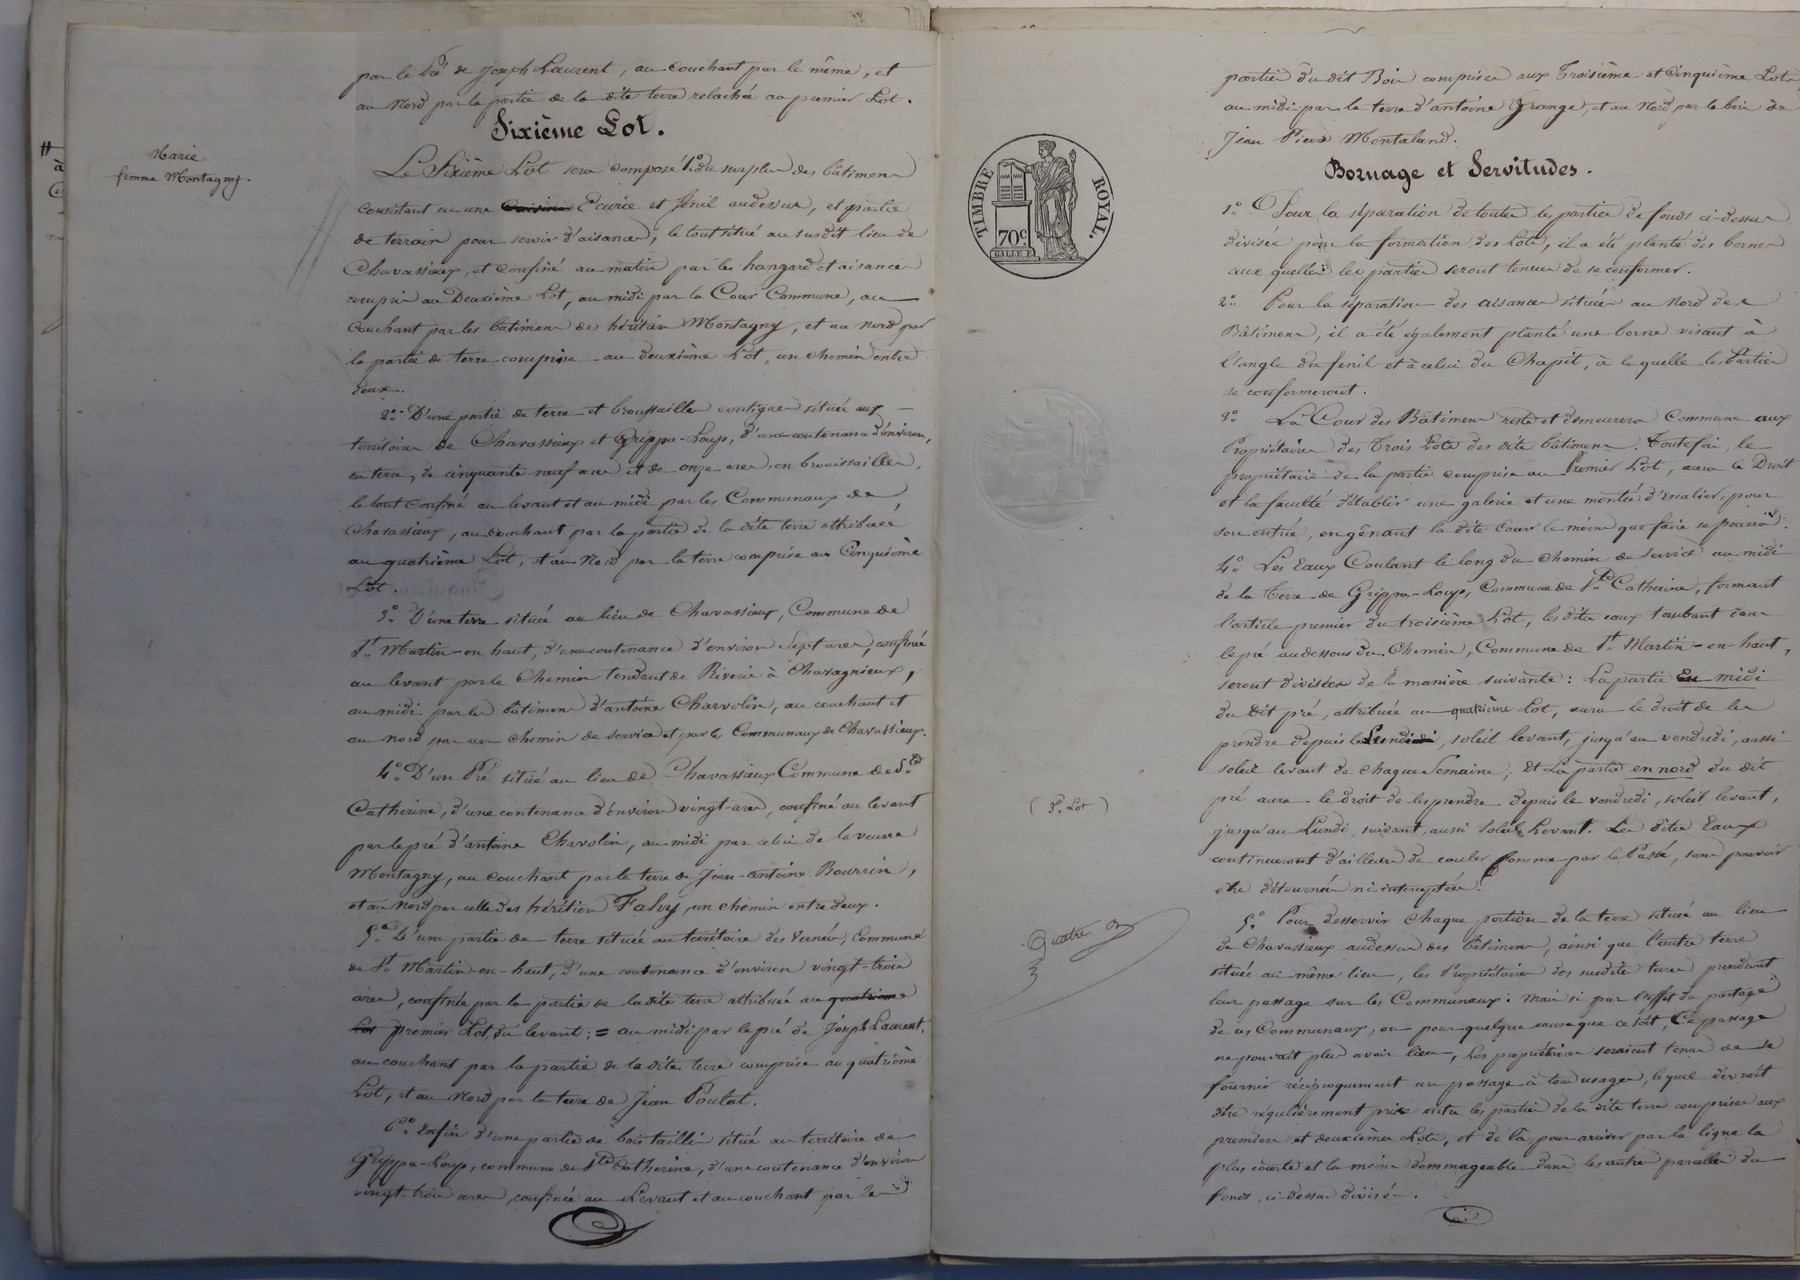 par le Pré de Joseph Laurent, au couchant par le même, et
au Nord par la partie de la dite terre relachée au premier Lot.
Sixième Lot.
Marie
femme Montagny.
Le Sixième Lot sera composé 1.° du surplus des bâtimens
consistant en une Cuisine Ecurie et fénil audessus, et partie
de terrain pour servir d'aisances, le tout situé au susdit lieu de
Chavassieux, et confiné au matin par les hangard et aisances
compris au Deuxième Lot, au midi par la Cour Commune, au
Couchant par les bâtimens des héritiers Montagny, et au nord par
la partie de terre comprise au deuxième Lot, un chemin entre
deux.
2.° D'une partie de terre et broussailles contigues située aux
territoires de Chavassieux et Grippa-Loup, d'une contenance d'environ,
en terre, de cinquante neuf ares et de onze ares en broussailles,
le tout confiné au levant et au midi par les Communaux de
Chavassieux, au couchant par la partie de la dite terre attribuée
au quatrième Lot, et au Nord par la terre comprise au Cinquième
Lot.
3.° D'une terre située au lieu de Chavassieux, Commune de
St. Martin-en-haut, d'une contenance d'environ Sept ares, confinée
au levant par le Chemin tendant de Riverie à Chavagnieux,
au midi par les bâtimens d'antoine Charvolin, au couchant et
au nord par un chemin de service et par les Communaux de Chavassieux.
4.° D'un Pré situé au lieu de Chavassieux Commune de Ste
Catherine, d'une contenance d'environ vingt-ares, confiné au levant
par le pré d'antoine Charvolin, au midi par celui de la veuve
Montagny, au couchant par la terre de Jean-antoine Bourrin,
et au Nord par celle des héritiers Fahy, un chemin entre deux.
5.° D'une partie de terre située au territoire des Vernés, Commune
de St. Martin-en-haut, d'une contenance d'environ vingt-trois
ares, confinée par la partie de la dite terre attribuée au quatrième
Lot premier Lot, du levant; = au midi par le pré de Joseph Laurent,
au couchant par la partie de la dite terre comprise au quatrième
Lot, et au Nord par la terre de Jean Poulat.
6.° Enfin d'une partie de bois taillis situé au territoire de
Grippa-Loup, commune de Ste Catherine, d'une contenance d'environ
vingt trois ares, confinée au Levant et au couchant par les
TIMBRE ROYAL.
70c.
parties du dit Bois comprises aux Troisième et Cinquième Lots,
au midi par la terre d'antoine Grange, et au Nord par le bois de
Jean Pierre Montaland.
Bornage et Servitudes.
1.° Pour la séparation de toutes les parties de fonds ci-dessus
divisées pour la formation des Lots, il a été planté des bornes
aux quelles les parties seront tenues de se conformer.
2.° Pour la séparation des aisances situées au Nord des
Bâtimens, il a été également planté une borne visant à
l'angle du fenil et à celui du Chapit, à laquelle les Parties
se conformeront.
3.° La Cour des Bâtimens reste et demeurera Commune aux
Propriétaires des Trois Lots des dits bâtimens. Toutefois, le
propriétaire de la partie comprise au Premier Lot, aura le Droit
et la faculté d'établir une galerie et une montée d'escalier, pour
son entrée, en gênant la dite Cour le moins que faire se pourra.
4.° Les Eaux Coulant le long du chemin de service au midi
de la Terre de Grippa-Loup, Commune de Ste Catherine, formant
l'article premier du troisième Lot, les dites eaux tombant dans
le pré audessous du Chemin, Commune de St. Martin-en-haut,
seront divisées de la manière suivante: La partie en midi
du dit pré, attribuée au quatrième Lot, aura le droit de les
prendre depuis le Lundi, soleil levant, jusqu'au vendredi, aussi
soleil levant de chaque Semaine; Et La partie en nord du dit
(3.e Lot)
pré aura le droit de les prendre depuis le vendredi, soleil levant,
jusqu'au Lundi, suivant, aussi soleil Levant. Les dites Eaux
continueront d'ailleurs de couler comme par le Passé, sans pouvoir
être détournées ni interceptées.
Quatre
5.° Pour desservir chaque portion de la terre située au lieu
de Chavassieux audessus des bâtimens, ainsi que l'autre terre
située au même lieu, les Propriétaires des susdites terres prendront
leur passage sur les Communaux: mais si par l'effet du partage
de ces Communaux, ou pour quelque cause que ce soit, Ce passage
ne pouvait plus avoir lieu, Les propriétaires seraient tenus de se
fournir réciproquement un passage à tous usages, lequel devrait
être régulièrement pris entre les parties de la dite terre comprises aux
premiers et deuxièmes Lots, et de là, pour arriver par la ligne la
plus courte et la moins dommageable dans les autres parcelles du
fonds, ci-dessus divisés.